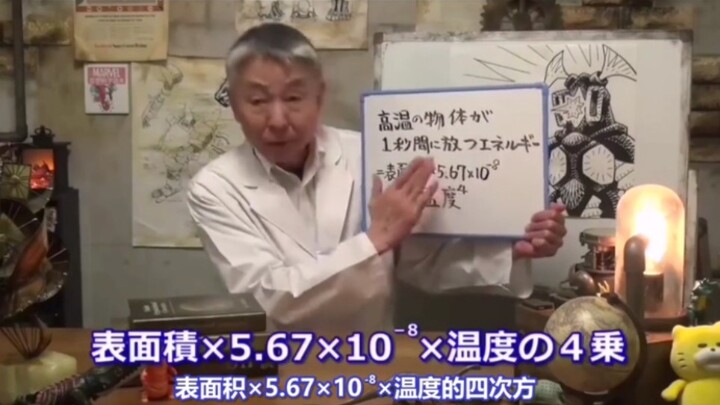 MARVEL
高温の物体が
1秒間に放つエネルギー
=表面 5.67×10⁻⁸
度⁴
表面積×5.67×10⁻⁸×温度の4乗
表面积×5.67×10⁻⁸×温度的四次方